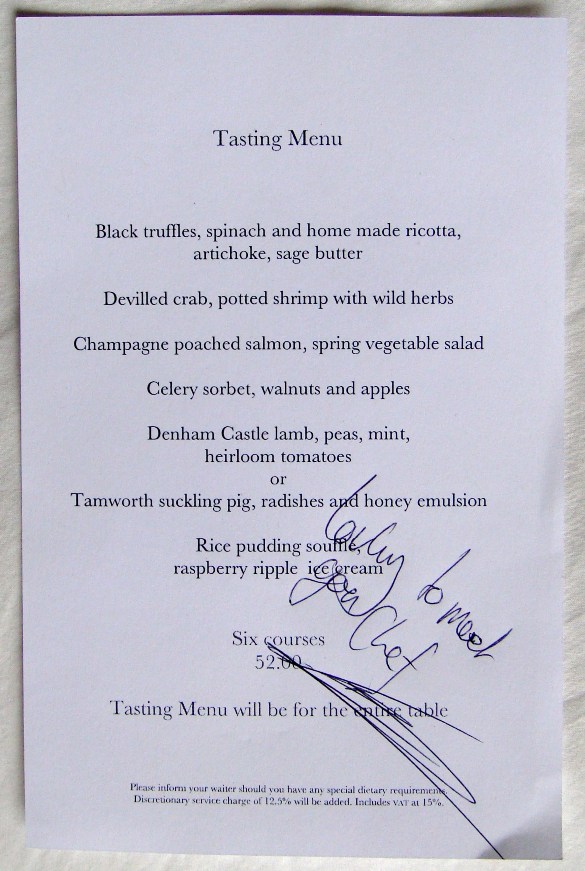 Tasting Menu
Black truffles, spinach and home made ricotta,
artichoke, sage butter
Devilled crab, potted shrimp with wild herbs
Champagne poached salmon, spring vegetable salad
Celery sorbet, walnuts and apples
Denham Castle lamb, peas, mint,
heirloom tomatoes
or
Tamworth suckling pig, radishes and honey emulsion
Rice pudding souffle,
raspberry ripple ice cream
to meet
you Chef
Six courses
52.00
Tasting Menu will be for the entire table
Please inform your waiter should you have any special dietary requirements.
Discretionary service charge of 12.5% will be added. Includes VAT at 15%.